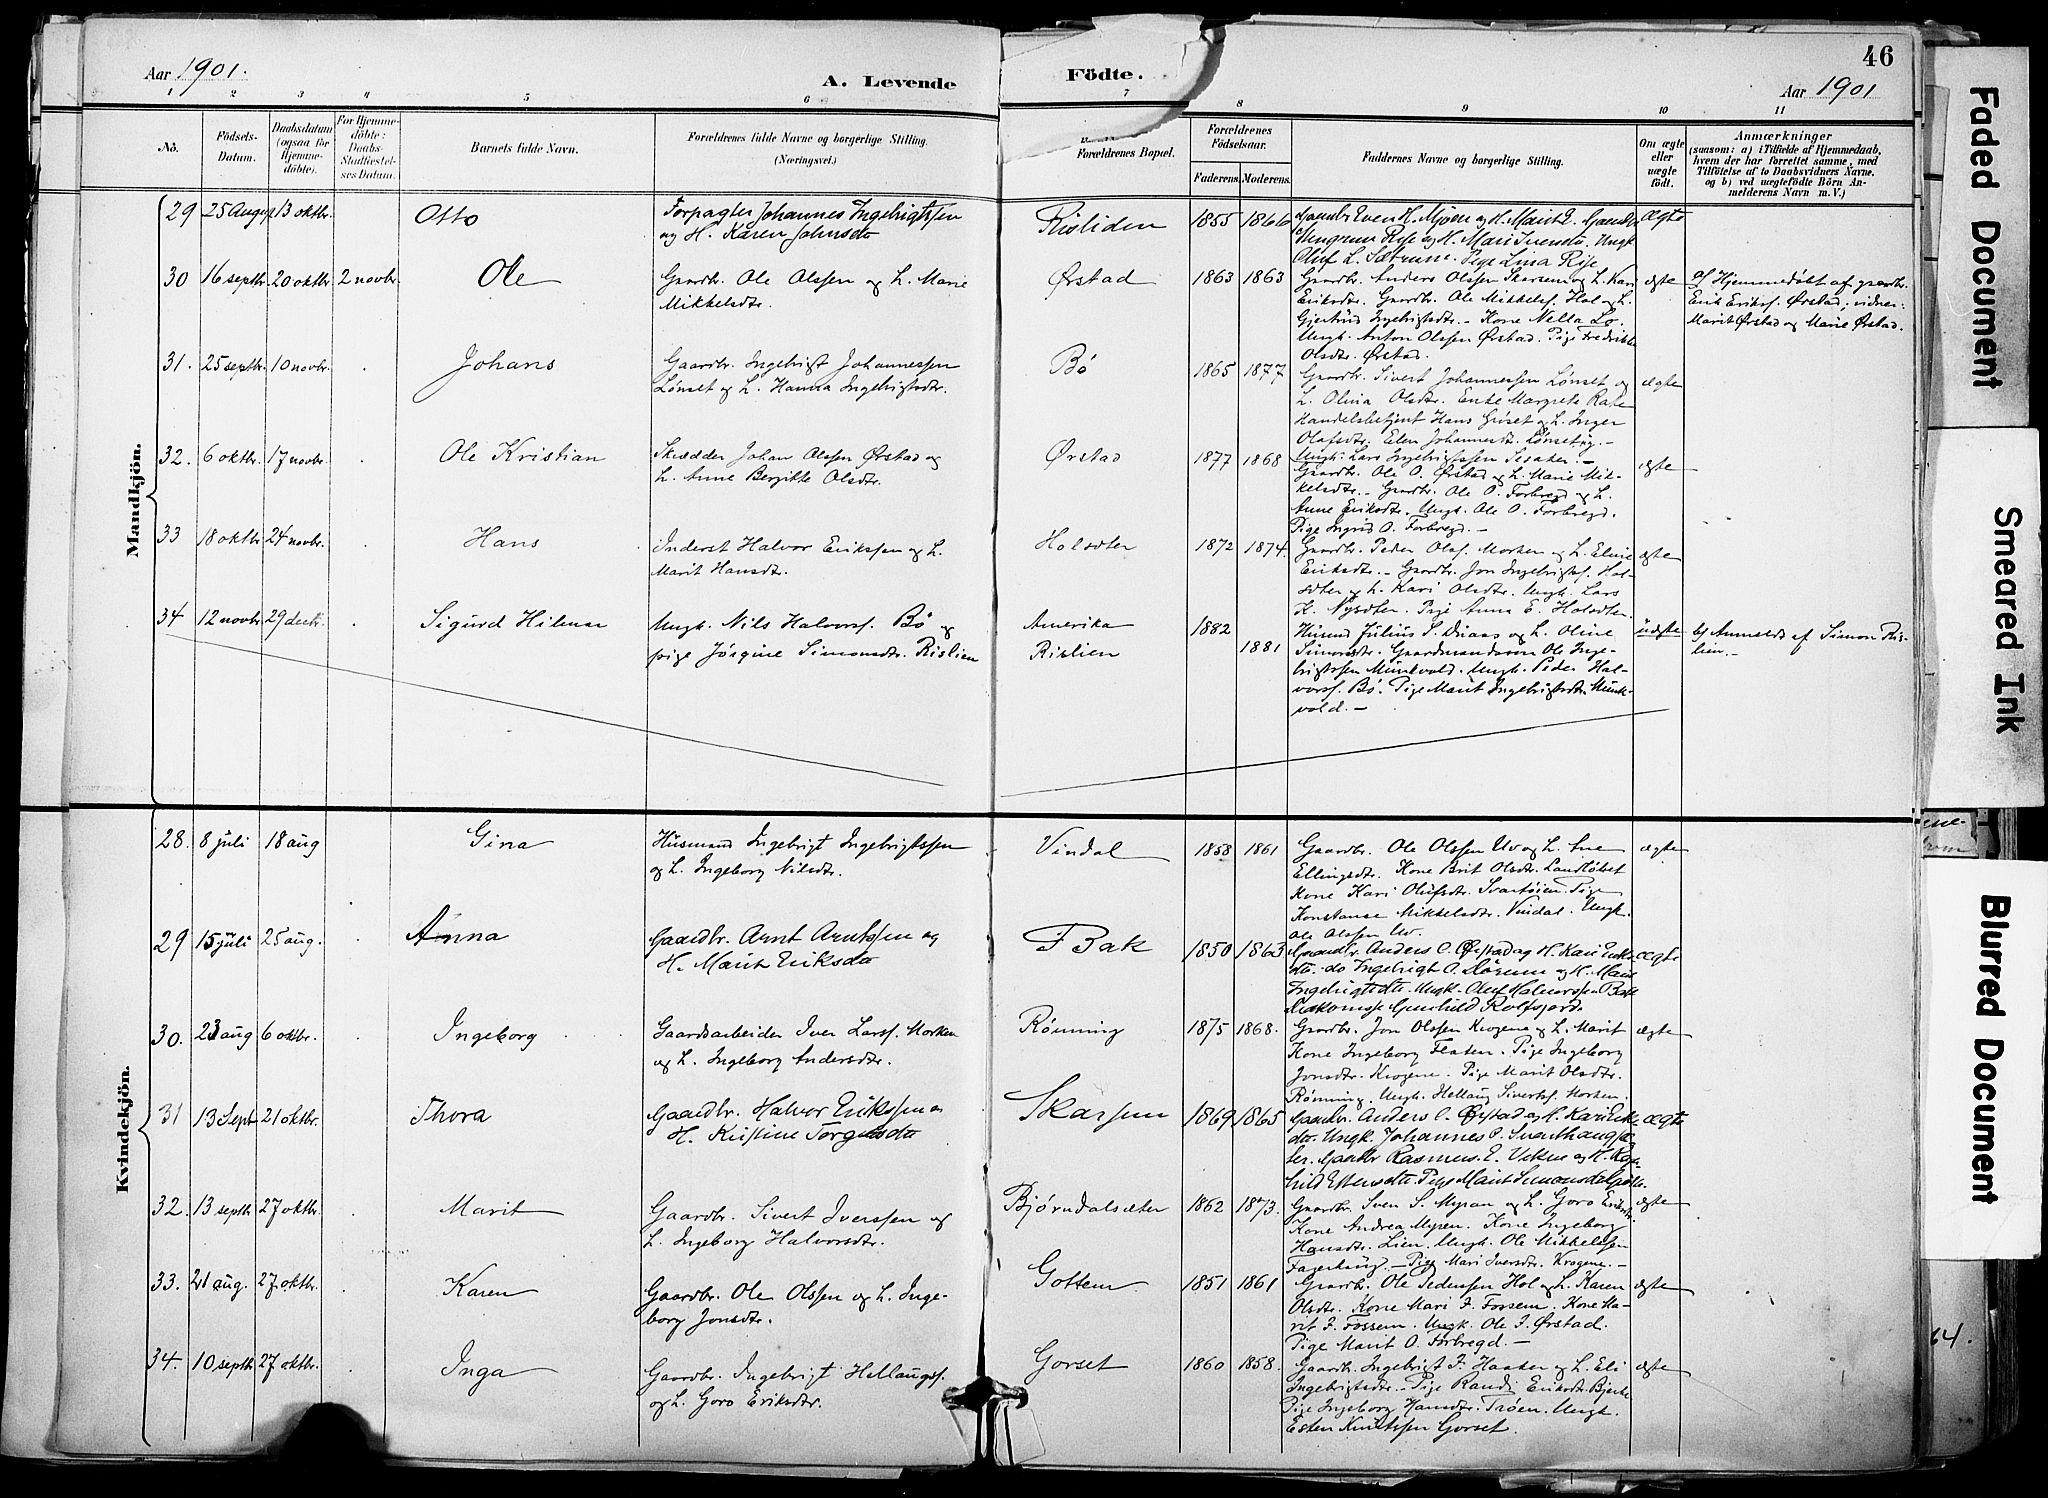 46
Aar 1901.
A. Levende
Födte.
Aar 1901
1 2 3 4 5 6 7 8 9 10 11
No.
Födsels-
Datum.
Daabsdatum
(ogsaa för
Hjemme-
döbte).
For Hjemme-
döbte:
Daabs-
Stadfæstel-
ses Datum.
Barnets fulde Navn.
Forældrenes fulde Navne og borgerlige Stilling.
(Næringsvei.)
Forældrenes Bopæl.
Forældrenes
Födselsaar.
Faderens. Moderens.
Faddernes Navne og borgerlige Stilling.
Om ægte
eller
uægte
födt.
Anmærkninger
(saasom: a) i Tilfælde af Hjemmedaab,
hvem der har forrettet samme, med
Tilföielse af to Daabsvidners Navne,
og b) ved uægtefödte Börn An-
melderens Navn m. V.)
Mandkjön.
29 25 Aug 13 oktbr. Otto
Forpagter Johannes Ingebrigtssen
og H. Karen Johnsdtr
Risliden 1855 1866
Gaardbr Even H. Myren og H. Marit E.
Rise og H. Mari Iversdtr. Ungk
Oluf L. Sætrum. Pige Lina Rise
ægte
30 16 septbr. 20 oktbr. 2 novbr. Ole
Gaardbr. Ole Olssen og h. Marie
Mikkelsdtr.
Ørstad 1863 1863
Gaardbr. Anders Olssen Skarsem og h. Kari
Eriksdtr. Gaardbr. Ole Mikkels. Hol og h.
Gjertrud Ingebrigtsdtr. - Kone Nella Lo.
Ungk. Anton Olssen Ørstad. Pige Fredrikke
Olsdtr. Ørstad.
ægte
a/ Hjemmedøbt af gaardbr.
Erik Eriks. Ørstad; vidner
Marit Ørstad og Marie Ørstad.
31. 25 septbr. 10 novbr. Johans
Gaardbr. Ingebrigt Johannessen
Lønset og h. Hanna Ingebrigtsdtr.
Bö 1865 1877
Gaardbr. Sivert Johannessen Lønset og
h. Olina Olsdtr. Enke Margrete Rase
Handelsbetjent Hans Gröset og h. Inger
Olafsdtr. Elen Johannesdtr. Lønset
Ungk. Lars Ingebrigtssen
ægte
32. 6 oktbr. 17 novbr. Ole Kristian
Skrædder Johan Olssen Ørstad og
h. Anne Bergitte Olsdtr.
Ørstad 1877 1868
Gaardbr. Ole O. Ørstad og h. Marie Mik-
kelsdtr. - Gaardbr. Ole O. Forbregd og h.
Anne Eriksdtr. Ungk. Ole O. Forbregd.
Pige Ingrid O. Forbregd. -
ægte
33 18 oktbr 24 novbr. Hans
Inderst Halvor Erikssen og h.
Marit Hansdtr.
Holsdter 1872 1874.
Gaardbr. Peder Olaf. Morken og h. Eline
Eriksdtr. - Gaardbr. Jon Ingebrigts. Hol-
sdter og h. Kari Olsdtr. Ungk. Lars
K. Nysdter. Pige Anna E. Holsdter.
ægte
34 12 novbr. 29 decbr. Sigurd Hilmar
Ungk. Nils Halvors. Bö og
pige Jörgine Simonsdtr. Rislien
Amerika
Rislien
1882
1881
Husmd Julius S. Driaas og h. Oline
Simonsdtr. Gaardmandssøn Ole Inge-
brigtssen Munkvold. Ungk. Peder Hal-
vorss. Bö. Pige Marit Ingebrigtsdtr. Munk-
vold. -
uægte
b/ Anmeldt af Simon Ris-
lien. -
Kvindekjön.
28. 8 juli 18 aug Gina
Husmand Ingebrigt Ingebrigtssen
og h. Ingeborg Nilsdtr.
Vindal 1853 1861
Gaardbr. Ole Olssen Uv og h. Ane
Ellingsdtr. Kone Brit Olsdtr. Landløbet
Kone Kari Olufsdtr. Svartöien. Pige
Konstanse Mikkelsdtr. Vindal. Ungk.
Ole Olssen Uv.
ægte
29 15 juli 25 aug. Anna
Gaardbr. Arnt Arntssen og
H. Marit Eriksdtr
Bak 1850 1863
Gaardbr. Anders O. Ørstad og H. Kari Eriks-
dtr. do Ingebrigt O. Dörum og H. Marit
Ingebrigtsdtr. Ungk. Oluf Halvorssen Bak
Diakonisse Gunhild Rolfsjord.
ægte
30. 23 aug 6 oktbr. Ingeborg
Gaardsarbeider Iver Lars. Morken
og h. Ingeborg Andersdtr.
Rönning 1875 1868.
Gaardbr. Jon Olssen Krogene og h. Marit
Kone Ingeborg Flaten. Pige Ingeborg
Jonsdtr. Krogene. Pige Marit Olsdtr.
Rönning. Ungk. Hellaug Siverts. Morken.
ægte
31 13 Sept 21 oktbr. Thora
Gaardbr. Halvor Erikssen og
H. Kristine Torgersdtr
Skarsem 1869 1865
Gaardbr Anders O. Ørstad og H. Kari Eriks-
dtr. Ungk. Johannes P.
Gaardbr Rasmus E. og H.
Estensdtr. Pige Marit Simonsdtr
ægte
32. 13 septbr. 27 oktbr. Marit
Gaardbr. Sivert Iverssen og
h. Ingeborg Halvorsdtr.
Bjørndalsæter 1862 1873.
Gaardbr. Sven S. Myran og h. Goro Eriksdtr.
Kone Andrea Myren. Kone Ingeborg
Hansdtr. Lien. Ungk. Ole Mikkelssen
Fagerhaug. - Pige Mari Iversdtr. Krogene. -
ægte
33. 21 aug. 27 oktbr. Karen
Gaardbr. Ole Olssen og h. Inge-
borg Jonsdtr.
Gottem 1851 1861
Gaardbr. Ole Pedersen Hol og h. Karen
Olsdtr. Kone Mari F. Fossem. Kone Ma-
rit F. Fossem. Ungk Ole F. Ørstad.
Pige Marit O. Forbregd. -
ægte
34. 10 septbr. 27 oktbr. Inga
Gaardbr. Ingebrigt Hellaugs.
og h. Goro Eriksdtr.
Gorset 1860 1858.
Gaardbr. Ingebrigt F. Haaker og h. Eli
Ingebrigtsdtr. - Pige Randi Eriksdtr. Bjerke
Pige Ingeborg Hansdtr. Trøen. Ungk.
Esten Knutssen Gorset.
ægte
Faded Document
Smeared Ink
Blurred Document
64.